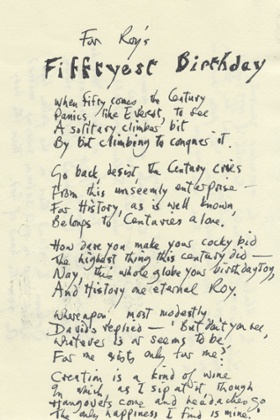 For Roy's
Fiffryest Birthday
When fifty comes the Century
Panics, like Everest, to see
A solitary climber bit
By bit climbing to conquer it.
Go back desist, the Century cries
From this unseemly enterprise —
For History, as is well known,
Belongs to Centuries alone.
How dare you make your cocky bid
The highest thing this century did —
Nay, this whole globe your birthday toy,
And History one eternal Roy.
Whereupon, most modestly,
David replied — 'But don't you see,
Whatever is or seems to be,
For me exists only for me?'
Creation is a kind of wine
In which, as I sip at it, though
Hangovers come and headaches go
The only happiness I find is mine.